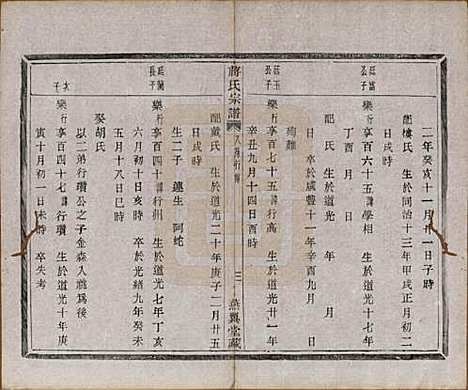 二年癸亥十一月廿一日子時
配樓氏 生於同治十三年甲戌正月初二
日戌時
廷富公子
樂行享百六十五諱學相 生於道光十七年
丁酉月 日
配 氏 生於道光 年 月 日
卒於咸豐十一年辛酉九月 日
殉難
廷玉公子
樂行享百七十五諱行高 生於道光廿一年
辛丑九月十四日酉時
蔣氏宗譜
三
燕翼堂藏
配戴氏 生於道光二十年庚子二月廿五
日戌時
生二子 連生 阿蛇
廷蘭長子
樂行享百四十諱行州 生於道光七年丁亥
六月初十日亥時 卒於光緒九年癸未
五月十八日巳時
娶胡氏
以二弟行瓚公之子金森入繼爲後
次子
樂行享百四十七諱行瓚 生於道光十年庚
寅十月初一日未時 卒失考